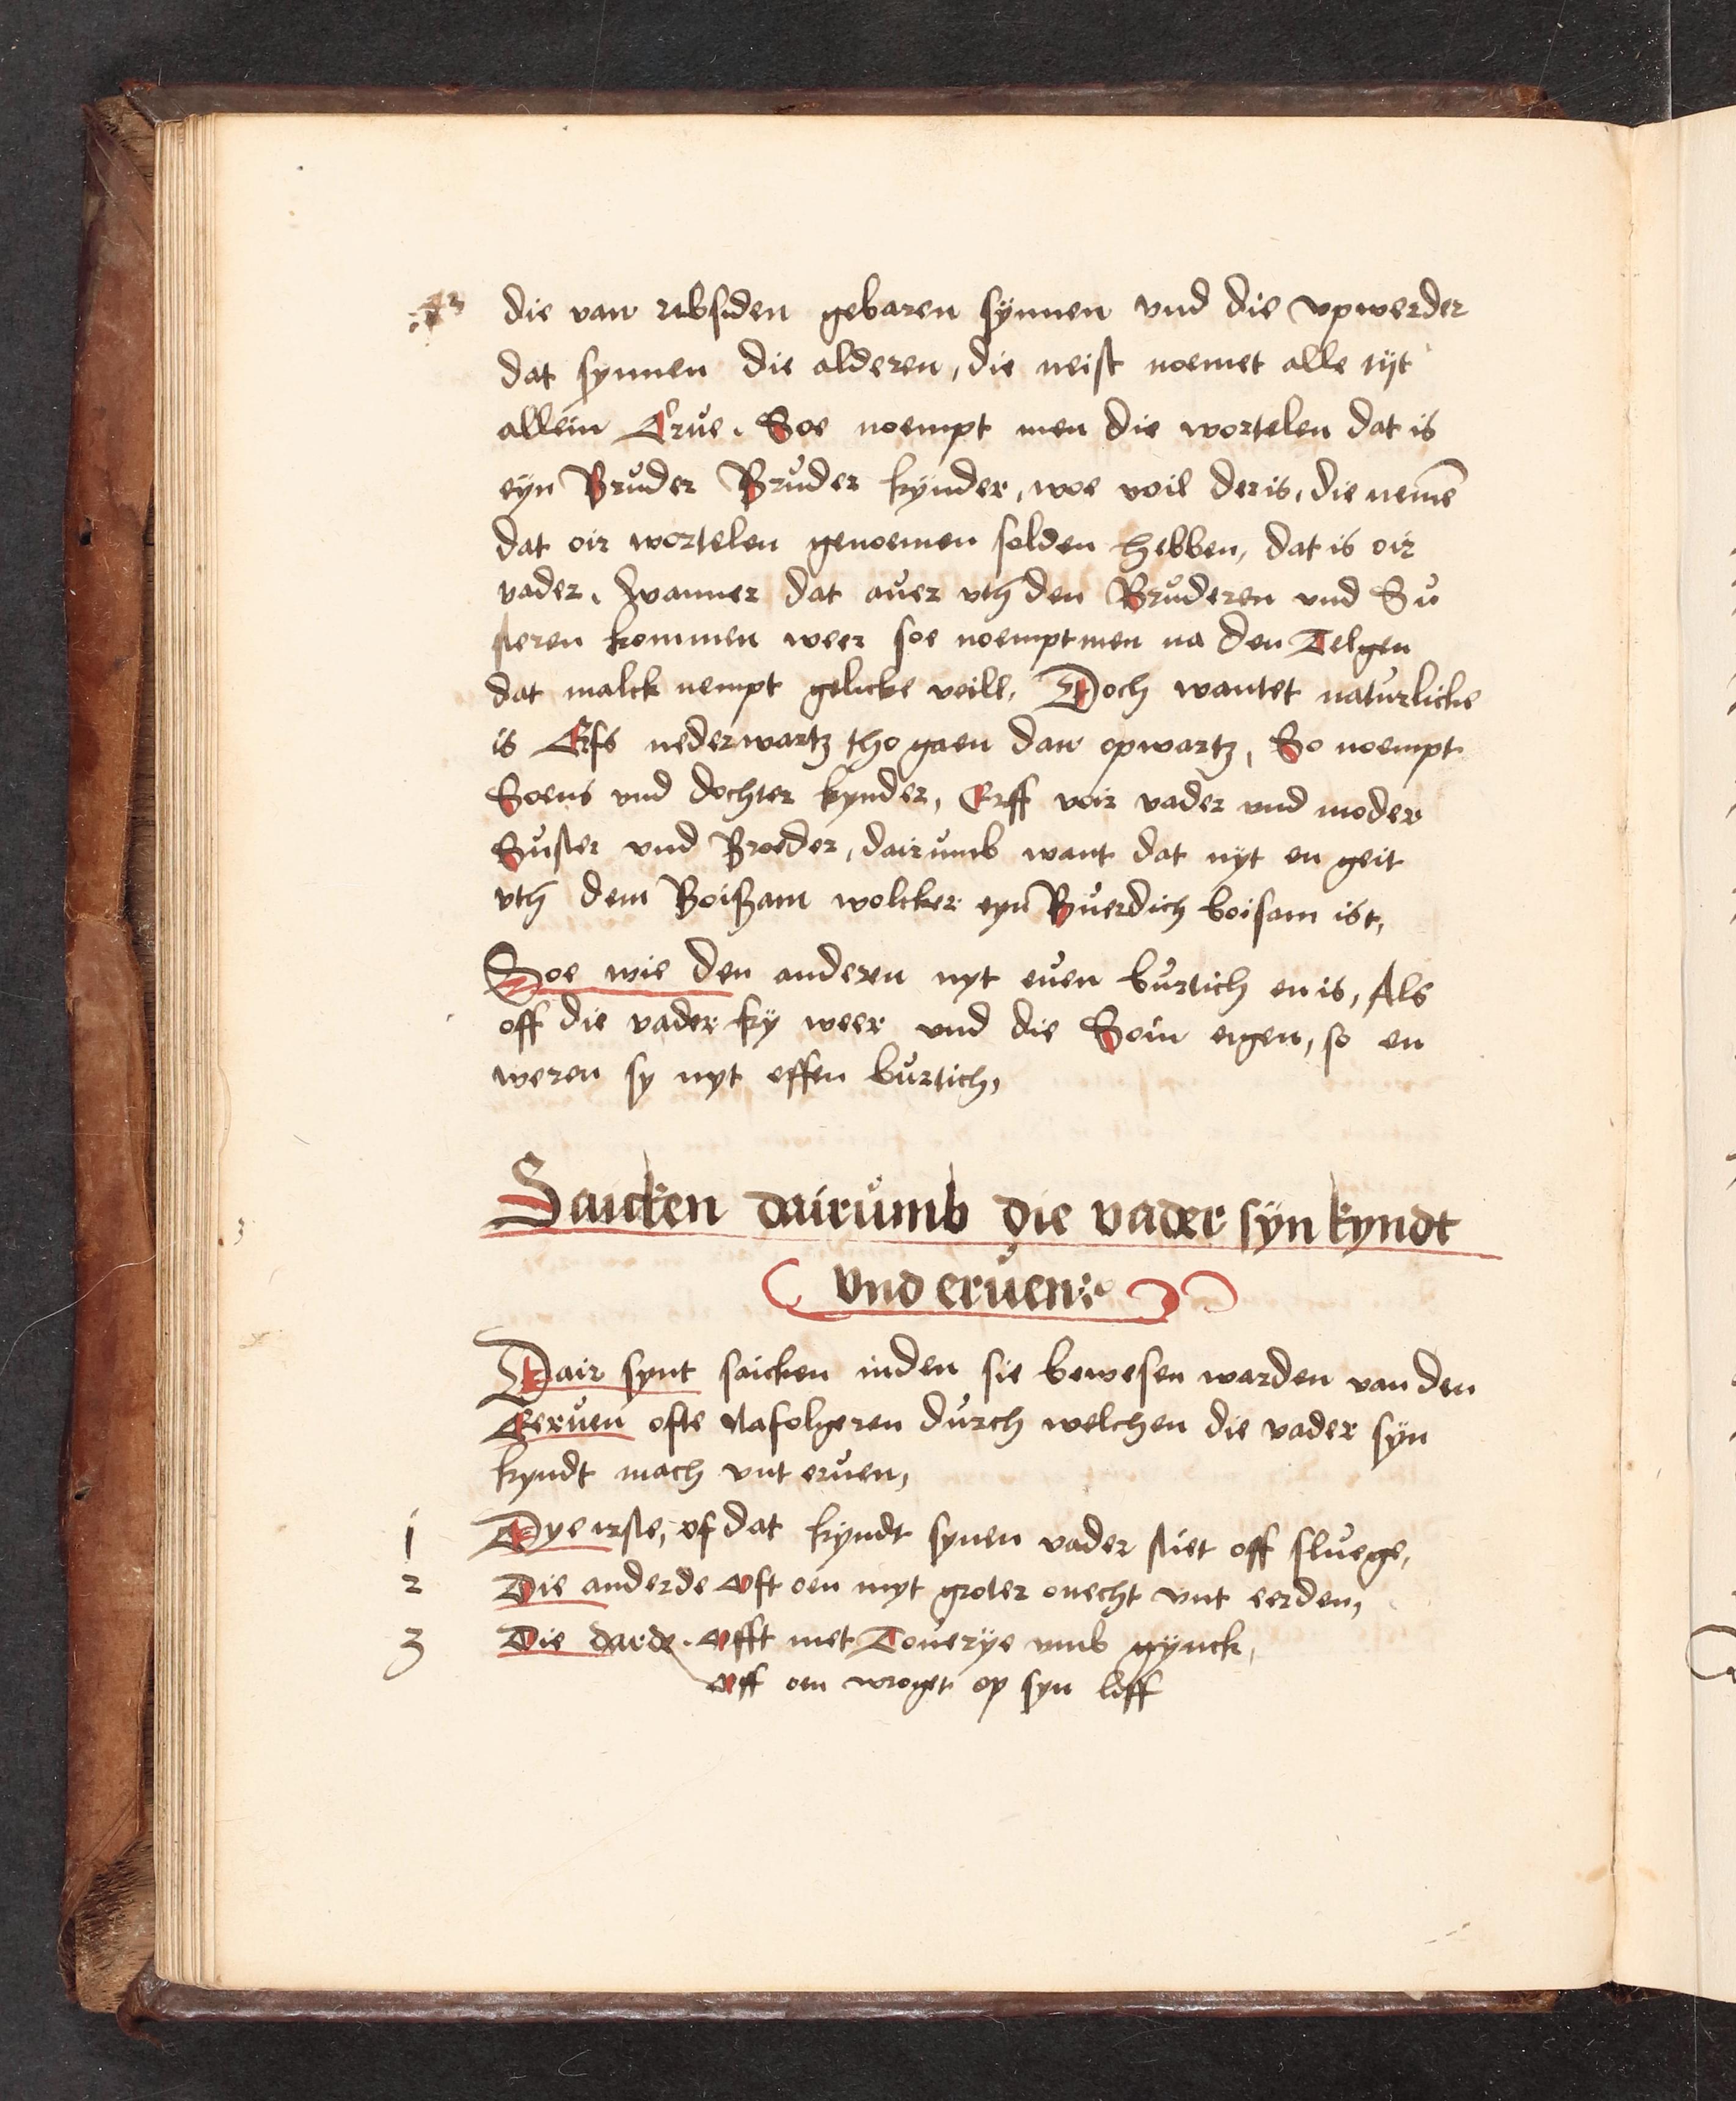 die van absiden gebaren synnen vnd die vpwerder
dat synnen die alderen, die neist noemet alle tijt
allein Erue. Soe noempt men die wortelen dat is
eyn Bruder Bruder kynder, woe voil der is, die nemē
dat oir wortelen genoemen solden hebben, dat is oir
vader. Wanner dat auer vth den Bruderen vnd Su
steren kommen weer soe noempt men na den Telgen
dat malck nempt gelicke veill. Doch wantet naturlicke
is Erfs nederwartz tho gaen dan opwartz, So noempt
Soens vnd dochter kynder, Erff voir vader vnd moder
Suster vnd Broeder, dairumb want dat nyt en geit
vth dem Boißam wolcker eyn Buerdich boisam ist,
Soe wie den anderen nyt euen burtich en is, Als
off die vader fry weer vnd die Soin eigen, so en
weren sy nyt effen burtich,
Saicken dairumb die vader syn kyndt
vnd eruen:
Dair synt saicken inden sie bewesen warden van den
Eeruen ofte Nafolgeren durch welchen die vader syn
kyndt mach vnt eruen,
1 Dye irste, of dat kyndt synen vader stiet off sluege,
2 Die anderde Oft oen myt groter onecht vnt eerden,
3 Die darde. Offt met Touerye vmb gynck,
Off oen wroget op syn liff